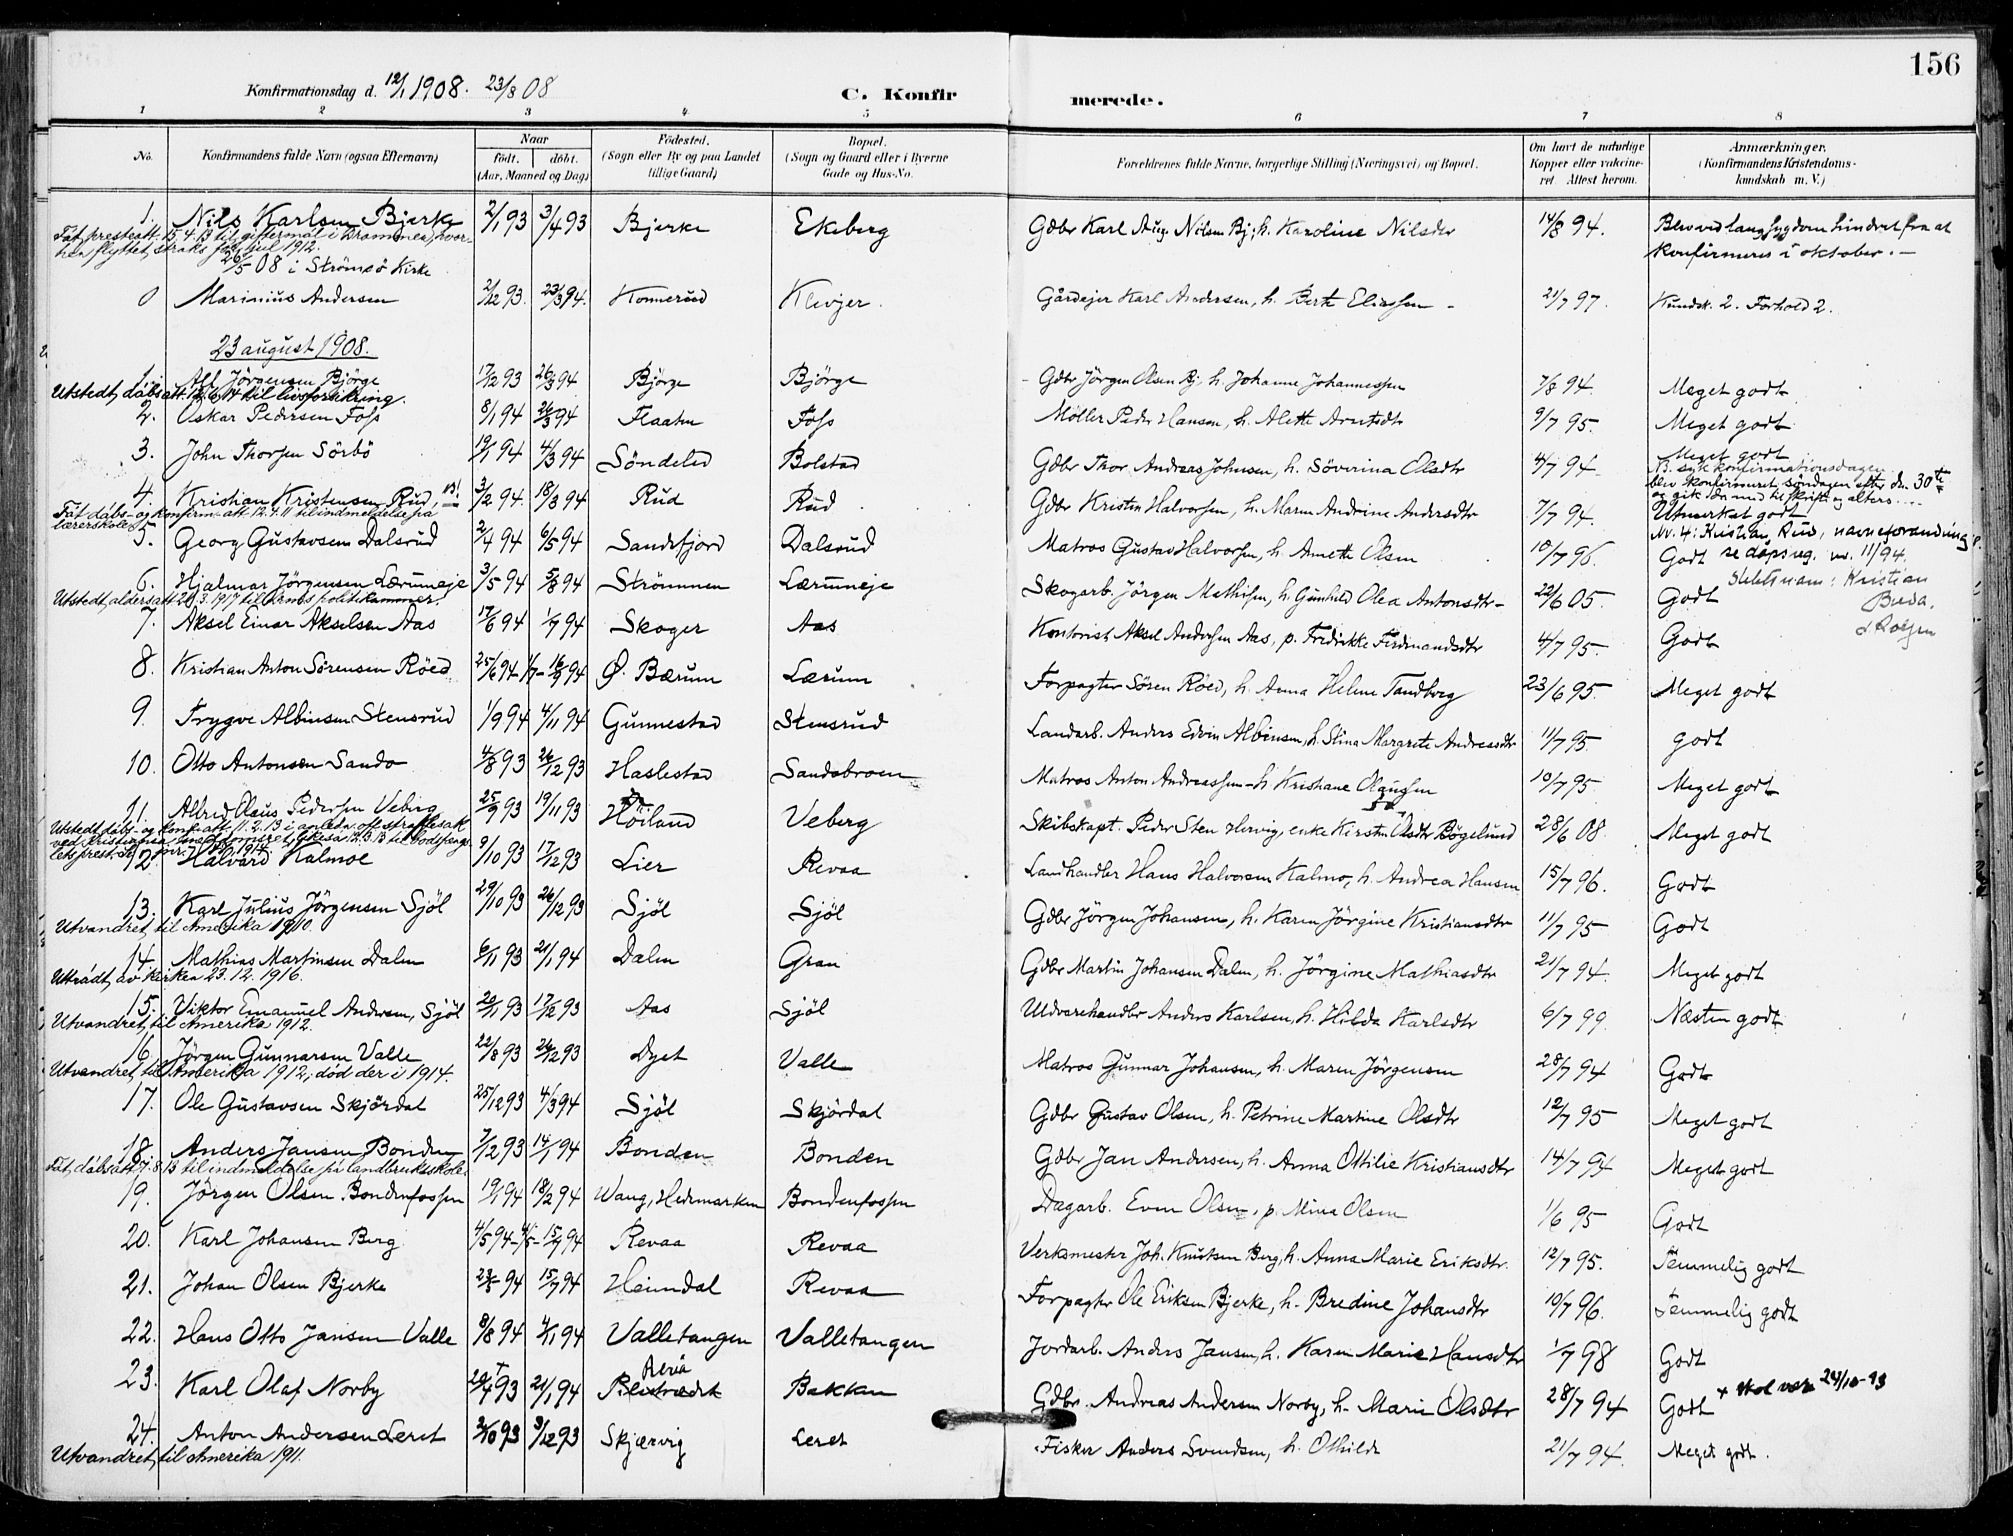 156
Konfirmationsdag d. 12/1 1908. 23/8 08
C. Konfirmerede.
1 2 3 4 5 6 7 8
No. Konfirmandens fulde Navn (ogsaa Efternavn) Naar født. døbt. (Aar, Maaned og Dag) Fødested. (Sogn eller By og paa Landet tillige Gaard) Bopæl. (Sogn og Gaard eller i Byerne Gade og Hus-No. Forældrenes fulde Navne, borgerlige Stilling (Næringsvei) og Bopæl. Om havt de naturlige Kopper eller vaccineret. Attest herom. Anmærkninger. (Konfirmandens Kristendomskundskab m. V.)
1. Nils Karlsen Bjerke 2/1 93 3/4 93 Bjerke Ekeberg Gdbr Karl Aug. Nilsen Bj., h. Karoline Nilsdtr 14/8 94. Blev ved lang sygdom hindret fra at
konfirmeres i oktober. —
Fåt presteatt. 15.4.13 til giftermål i Drammen, hvor-
hen flyttet straks før jul 1912.
26/5 08 i Strömsö Kirke
0 Marinius Andersen 2/12 93. 23/3 94. Konnerud Klevjer. Gårdejer Karl Andersen, h. Berte Eliassen 21/7 97. Kundsk. 2. Forhold 2.
23 august 1908.
1. Alf Jörgensen Björge 17/12 93 26/3 94 Björge Björge Gdbr Jörgen Olsen Bj., h. Johanne Johannessen 7/8 94. Meget godt
Utstedt dåbsatt. 12.6.14 til livsforsikring.
2. Oskar Pedersen Foss 8/1 94 26/3 94 Flaaten Foss Møller Peder Hansen, h. Alette Arntsdtr 9/7 95. Meget godt
3. John Thorsen Sörbö 19/1 94 4/3 94 Söndeled Bolstad Gdbr Thor Andreas Johnsen, h. Söverina Olsdtr 4/7 94 Meget godt
4. Kristian Kristensen Rud, N! 3/2 94. 18/3 94 Rud Rud Gdbr Kristen Halvorsen, h. Maren Andrine Andersdtr 7/7 94. N. syk konfirmationsdagen
blev konfirmeret søndagen efter den 30te
og gik da med til skrifte og alters...
Utmerket godt
Nr. 4: Kristian Rud, navneforandring
se dåpsreg. nr. 11/94.
Fåt dåbs- og konfirm.att. 12.4.11 til indmeldelse på
lærerskole
5. Georg Gustavsen Dalsrud 2/4 94 6/5 94 Sandefjord Dalsrud Matros Gustav Halvorsen, h. Anette Olsen 10/7 96. Godt
6. Hjalmar Jörgensen Lærumeje 3/5 94 5/8 94 Strömmen Lærumeje Skogarb. Jörgen Mathisen, h. Gunhild Olea Antonsdtr 22/6 05. Godt
Utstedt aldersatt 20.3.1917 til politikammer.
7. Aksel Einar Akselsen Aas 17/6 94 1/7 94 Skoger Aas Kontorist Aksel Andersen Aas, p. Fredrikke Ferdinandsdtr 4/7 95. Godt
8. Kristian Anton Sörensen Röed 25/6 94 1/7 - 16/9 94 Ø. Bærum Lærum Forpagter Sören Röed, h. Anna Helene Tandberg 23/6 95. Meget godt
9. Trygve Albinsen Stensrud 1/9 94 4/11 94 Gunnestad Stensrud Landarb. Anders Edvin Albinsen, h. Stina Margrete Andreasdtr 11/7 95 godt
10. Otto Antonsen Sando 4/8 93 26/12 93 Haslestad Sandobroen Matros Anton Andreassen h. Kristiane Olaugsen 10/7 95 Meget godt
11. Alfred Olaus Pedersen Veberg 25/9 93 19/11 93 Höiland Veberg Skibskapt. Peder Sten Hervig, enke Kirstin Olsdtr Bögelund 28/6 08. Meget godt
Utstedt dåbs- og konf.att. 11.2.13 i anledn. off. straffesak
ved Kristiania meddomsret, likeså 14.3.13 til bodsfæng-
12. Halvard Kalmoe 9/10 93 17/12 93 Lier Revaa Landhandler Hans Halvorsen Kalmo, h. Andrea Hansen 15/7 96. Godt
13. Karl Julius Jörgensen Sjöl 29/10 93 26/12 93 Sjöl Sjöl Gdbr Jörgen Johansen, h. Karen Jörgine Kristiansdtr 11/7 95 Godt
Utvandret til Amerika 1910.
14. Mathias Martinsen Dalen 6/11 93 21/1 94 Dalen Gran Gdbr Martin Johansen Dalen, h. Jörgine Mathiasdtr 21/7 94. Meget godt
Uttrådt av kirken 23.12.1916.
15. Viktor Emanuel Andersen, Sjöl 20/11 93 17/12 93 Aas Sjöl Uldvarehandler Anders Karlsen, h. Hilda Karlsdtr 6/7 99. Næsten godt
Utvandret til Amerika 1912.
16. Jörgen Gunnarsen Valle 22/8 93 26/12 93 Dyet Valle Matros Gunnar Johansen, h. Maren Jörgensen 28/7 94 Godt
Utvandret til Amerika 1912, död der i 1914.
17. Ole Gustavsen Skjördal 25/12 93 4/3 94 Sjöl Skjördal Gdbr Gustav Olsen, h. Petrine Martine Olsdtr 12/7 95 Meget godt
18. Anders Jansen Bonden 7/12 93 14/1 94 Bonden Bonden Gdbr Jan Andersen, h. Anna Ottilie Kristiansdtr 14/7 94 Meget godt
Fåt dåbsatt. 7.8.13 til indmeldelse på landbruksskole
19. Jörgen Olsen Bondenfossen 19/1 94 18/2 94 Wang, Hedemarken Bondenfossen Dagarb. Even Olsen, p. Mina Olsen 1/6 95 Godt
20. Karl Johansen Berg 4/5 94 - 4/5 - 15/7 94 Revaa Revaa Verksmester Joh. Knutsen Berg, h. Anna Marie Eriksdtr. 12/7 95. Temmelig godt
21. Johan Olsen Bjerke 23/5 94 15/7 94 Heimdal Revaa Forpagter Ole Eriksen Bjerke, h. Bredine Johansdtr 10/7 96. Temmelig godt
22. Hans Otto Jansen Valle 8/8 94 4/11 94 Valletangen Valletangen Jordarb. Anders Jansen, h. Karen Marie Hansdtr 1/7 98 Godt
23. Karl Olaf Norby 29/7 93 21/1 94 Revå Bakken Gdbr. Andreas Andersen Norby, h. Marie Olsdtr 28/7 94 Godt + skal være 24/10-93
24. Anton Andersen Leret 2/10 93 3/12 93 Skjærvig Leret Fisker Anders Svendsen, h. Othilde 21/7 94. Meget godt.
Utvandret til Amerika 1911.